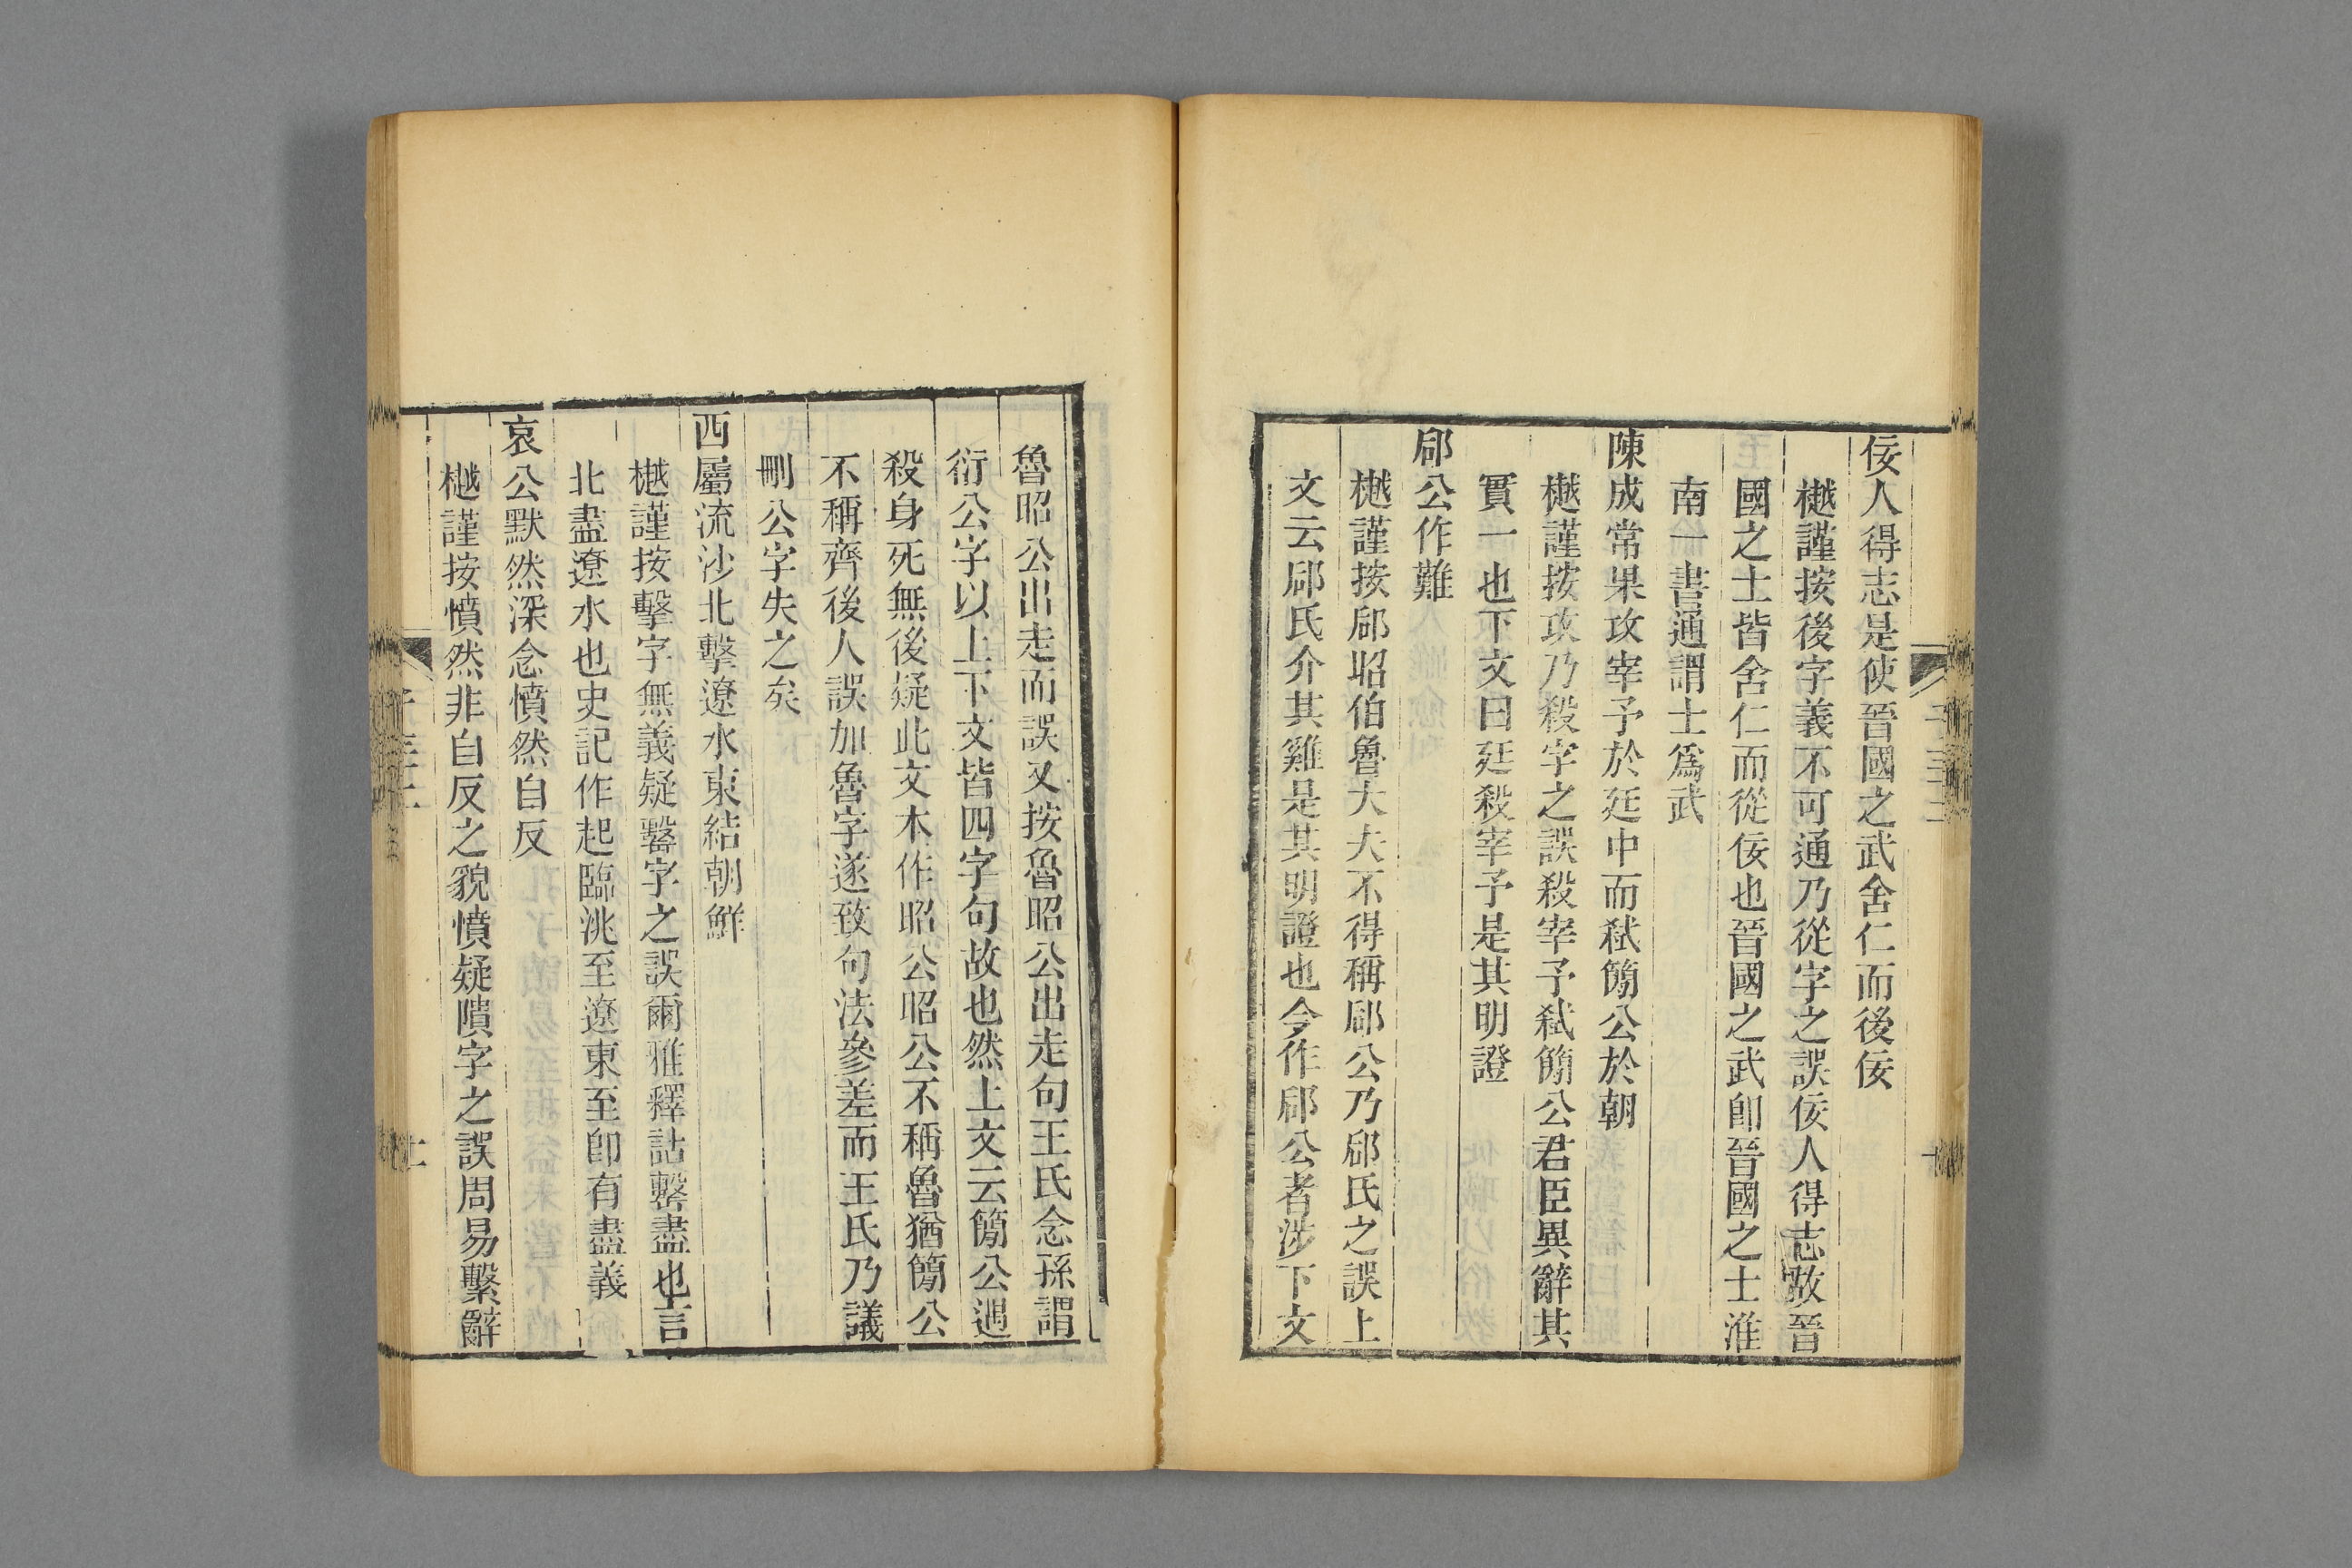 佞人得志是使晉國之武舍仁而後佞
樾謹按後字義不可通乃從字之誤佞人得志故晉
國之士皆舍仁而從佞也晉國之武卽晉國之士淮
南一書通謂士爲武
陳成常果攻宰予於廷中而弑簡公於朝
樾謹按攻乃殺字之誤殺宰予弑簡公君臣異辭其
實一也下文曰廷殺宰予是其明證
郈公作難
樾謹按郈昭伯魯大夫不得稱郈公乃郈氏之誤上
文云郈氏介其雞是其明證也今作郈公者涉下文
魯昭公出走而誤又按魯昭公出走句王氏念孫謂
衍公字以上下文皆四字句故也然上文云簡公遇
殺身死無後疑此文本作昭公昭公不稱魯猶簡公
不稱齊後人誤加魯字遂致句法參差而王氏乃議
刪公字失之矣
西屬流沙北擊遼水東結朝鮮
樾謹按擊字無義疑罊字之誤爾雅釋詁罊盡也言
北盡遼水也史記作起臨洮至遼東至卽有盡義
哀公默然深念憤然自反
樾謹按憤然非自反之貌憤疑隤字之誤周易繫辭